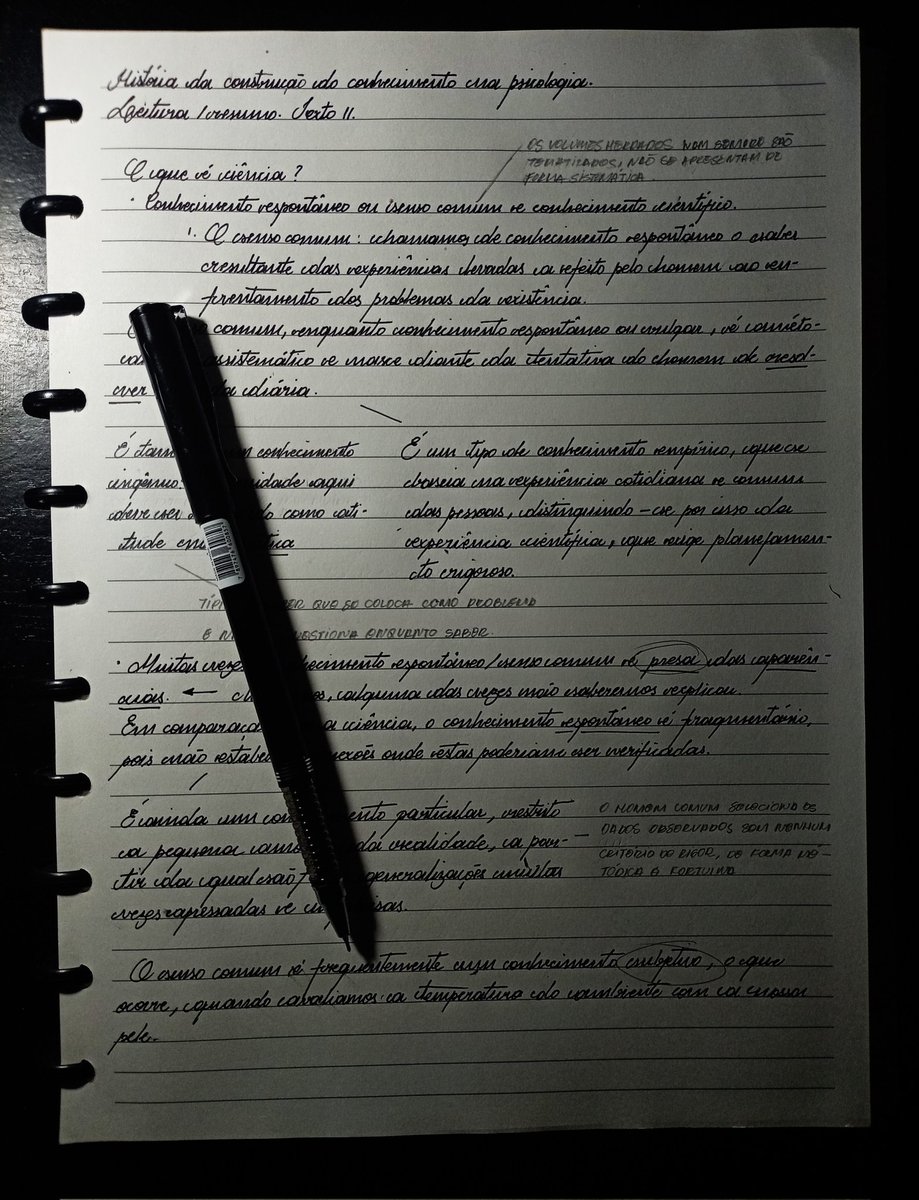 História da construção do conhecimento na psicologia.
Leitura / resumo. Texto II.
OS VOLUMES HERDADOS NEM SEMPRE SÃO
TEMATIZADOS, NÃO SE APRESENTAM DE
FORMA SISTEMÁTICA.
O que é ciência?
• Conhecimento espontâneo ou senso comum e conhecimento científico.
1. O senso comum: chamamos de conhecimento espontâneo o saber
resultante das experiências levadas a efeito pelo homem ao en-
frentamento dos problemas da existência.
comum, enquanto conhecimento espontâneo ou vulgar, é ameto-
assistemático e nasce diante da tentativa do homem de resol-
ver diária.
É um conhecimento
ingênuo. aqui
deve ser como ati-
tude
É um tipo de conhecimento empírico, que se
baseia na experiência cotidiana e comum
das pessoas, distinguindo-se por isso da
experiência científica, que exige planejamen-
to rigoroso.
QUE SE COLOCA COMO PROBLEMA
E ENQUANTO SABER.
• Muitas vezes conhecimento espontâneo/senso comum é presa das aparên-
cias. ← alguma das vezes não saberemos explicar.
Em a ciência, o conhecimento espontâneo é fragmentário,
pois não onde estas poderiam ser verificadas.
É ainda um particular, restrito
a pequena da realidade, a par-
tir da qual são generalizações muitas
vezes apressadas e
O HOMEM COMUM SELECIONA OS
DADOS OBSERVADOS SEM NENHUM
CRITÉRIO DE RIGOR, DE FORMA ME-
TÓDICA E FORTUITA
O senso comum é frequentemente um conhecimento subjetivo, o que
ocorre, quando avaliamos a temperatura do ambiente com a nossa
pele.